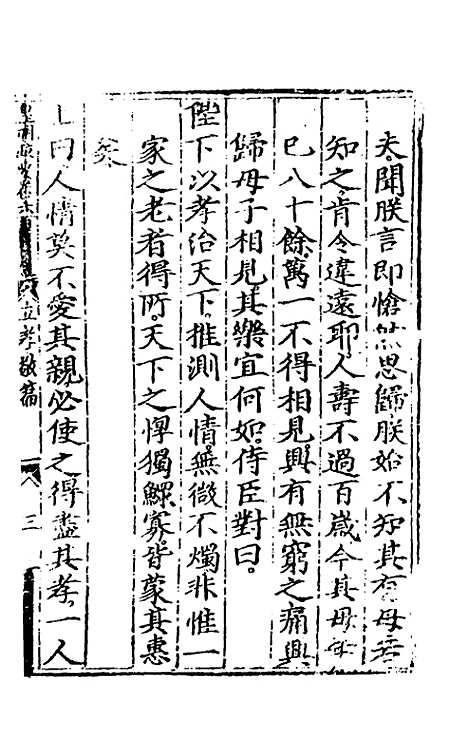 夫聞朕言即愴然思歸朕始不知其有母若
知之肯令違遠耶人壽不過百歲今其母年
已八十餘萬一不得相見興有無窮之痛興
歸母子相見其樂宜何如侍臣對曰
陛下以孝治天下推測人情無微不燭非惟一
家之老者得所天下之惸獨鰥寡皆蒙其惠
矣
上曰人情莫不愛其親必使之得盡其孝一人
孝敬篇
三